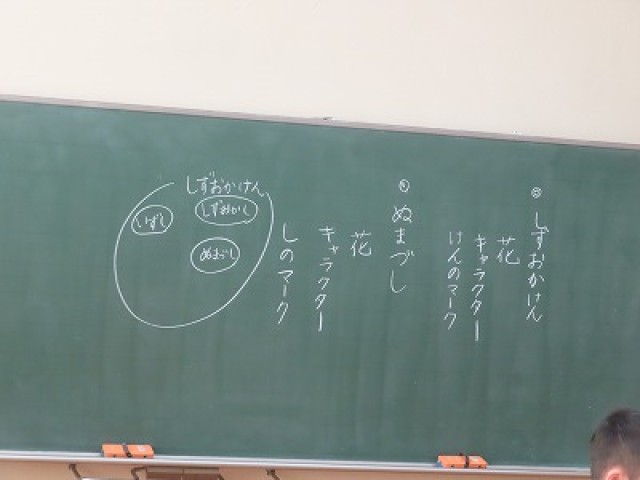 ◎しずおかけん
花
キャラクター
けんのマーク
◎ぬまづし
花
キャラクター
しのマーク
しずおかけん
しずおかし
いずし
ぬまづし